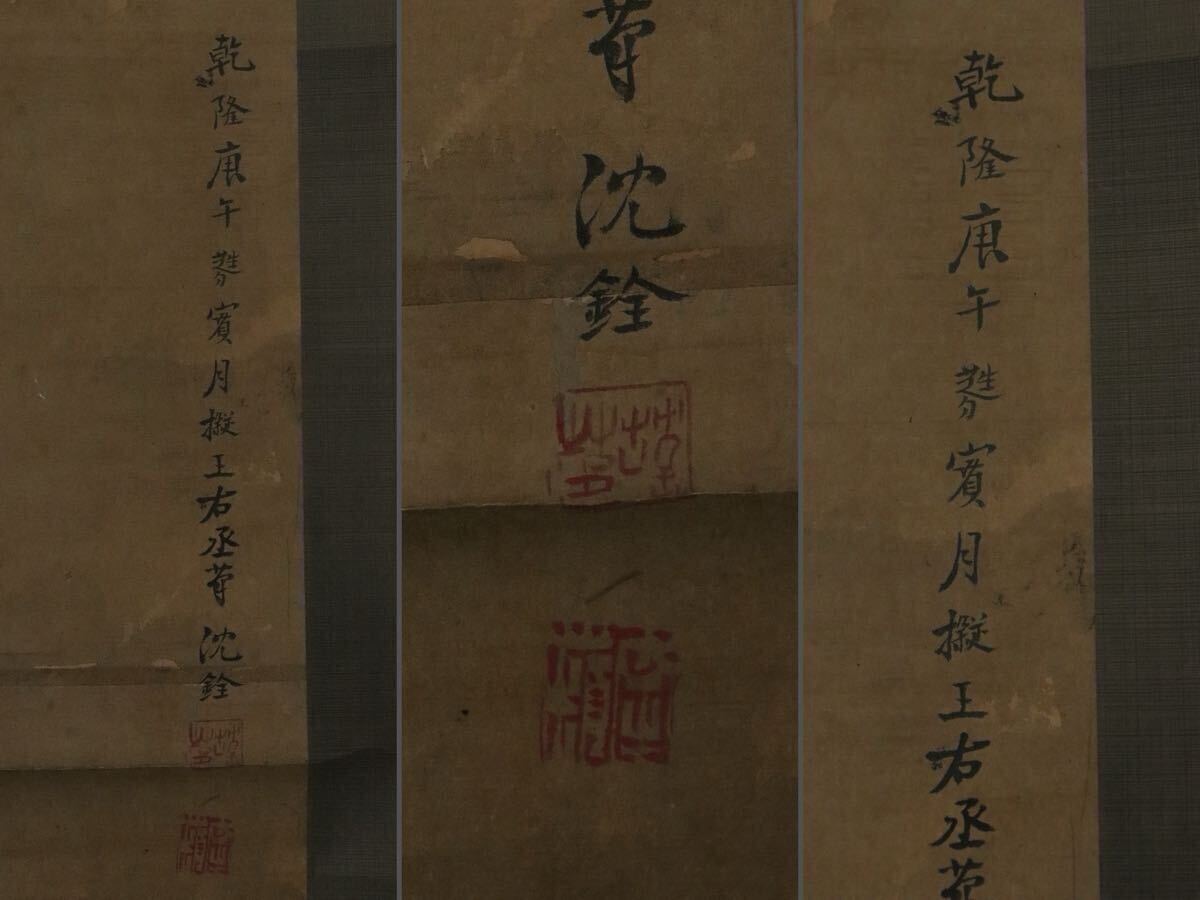 乾隆庚午蕤賓月擬王右丞筆沈銓
沈銓
乾隆庚午蕤賓月擬王右丞